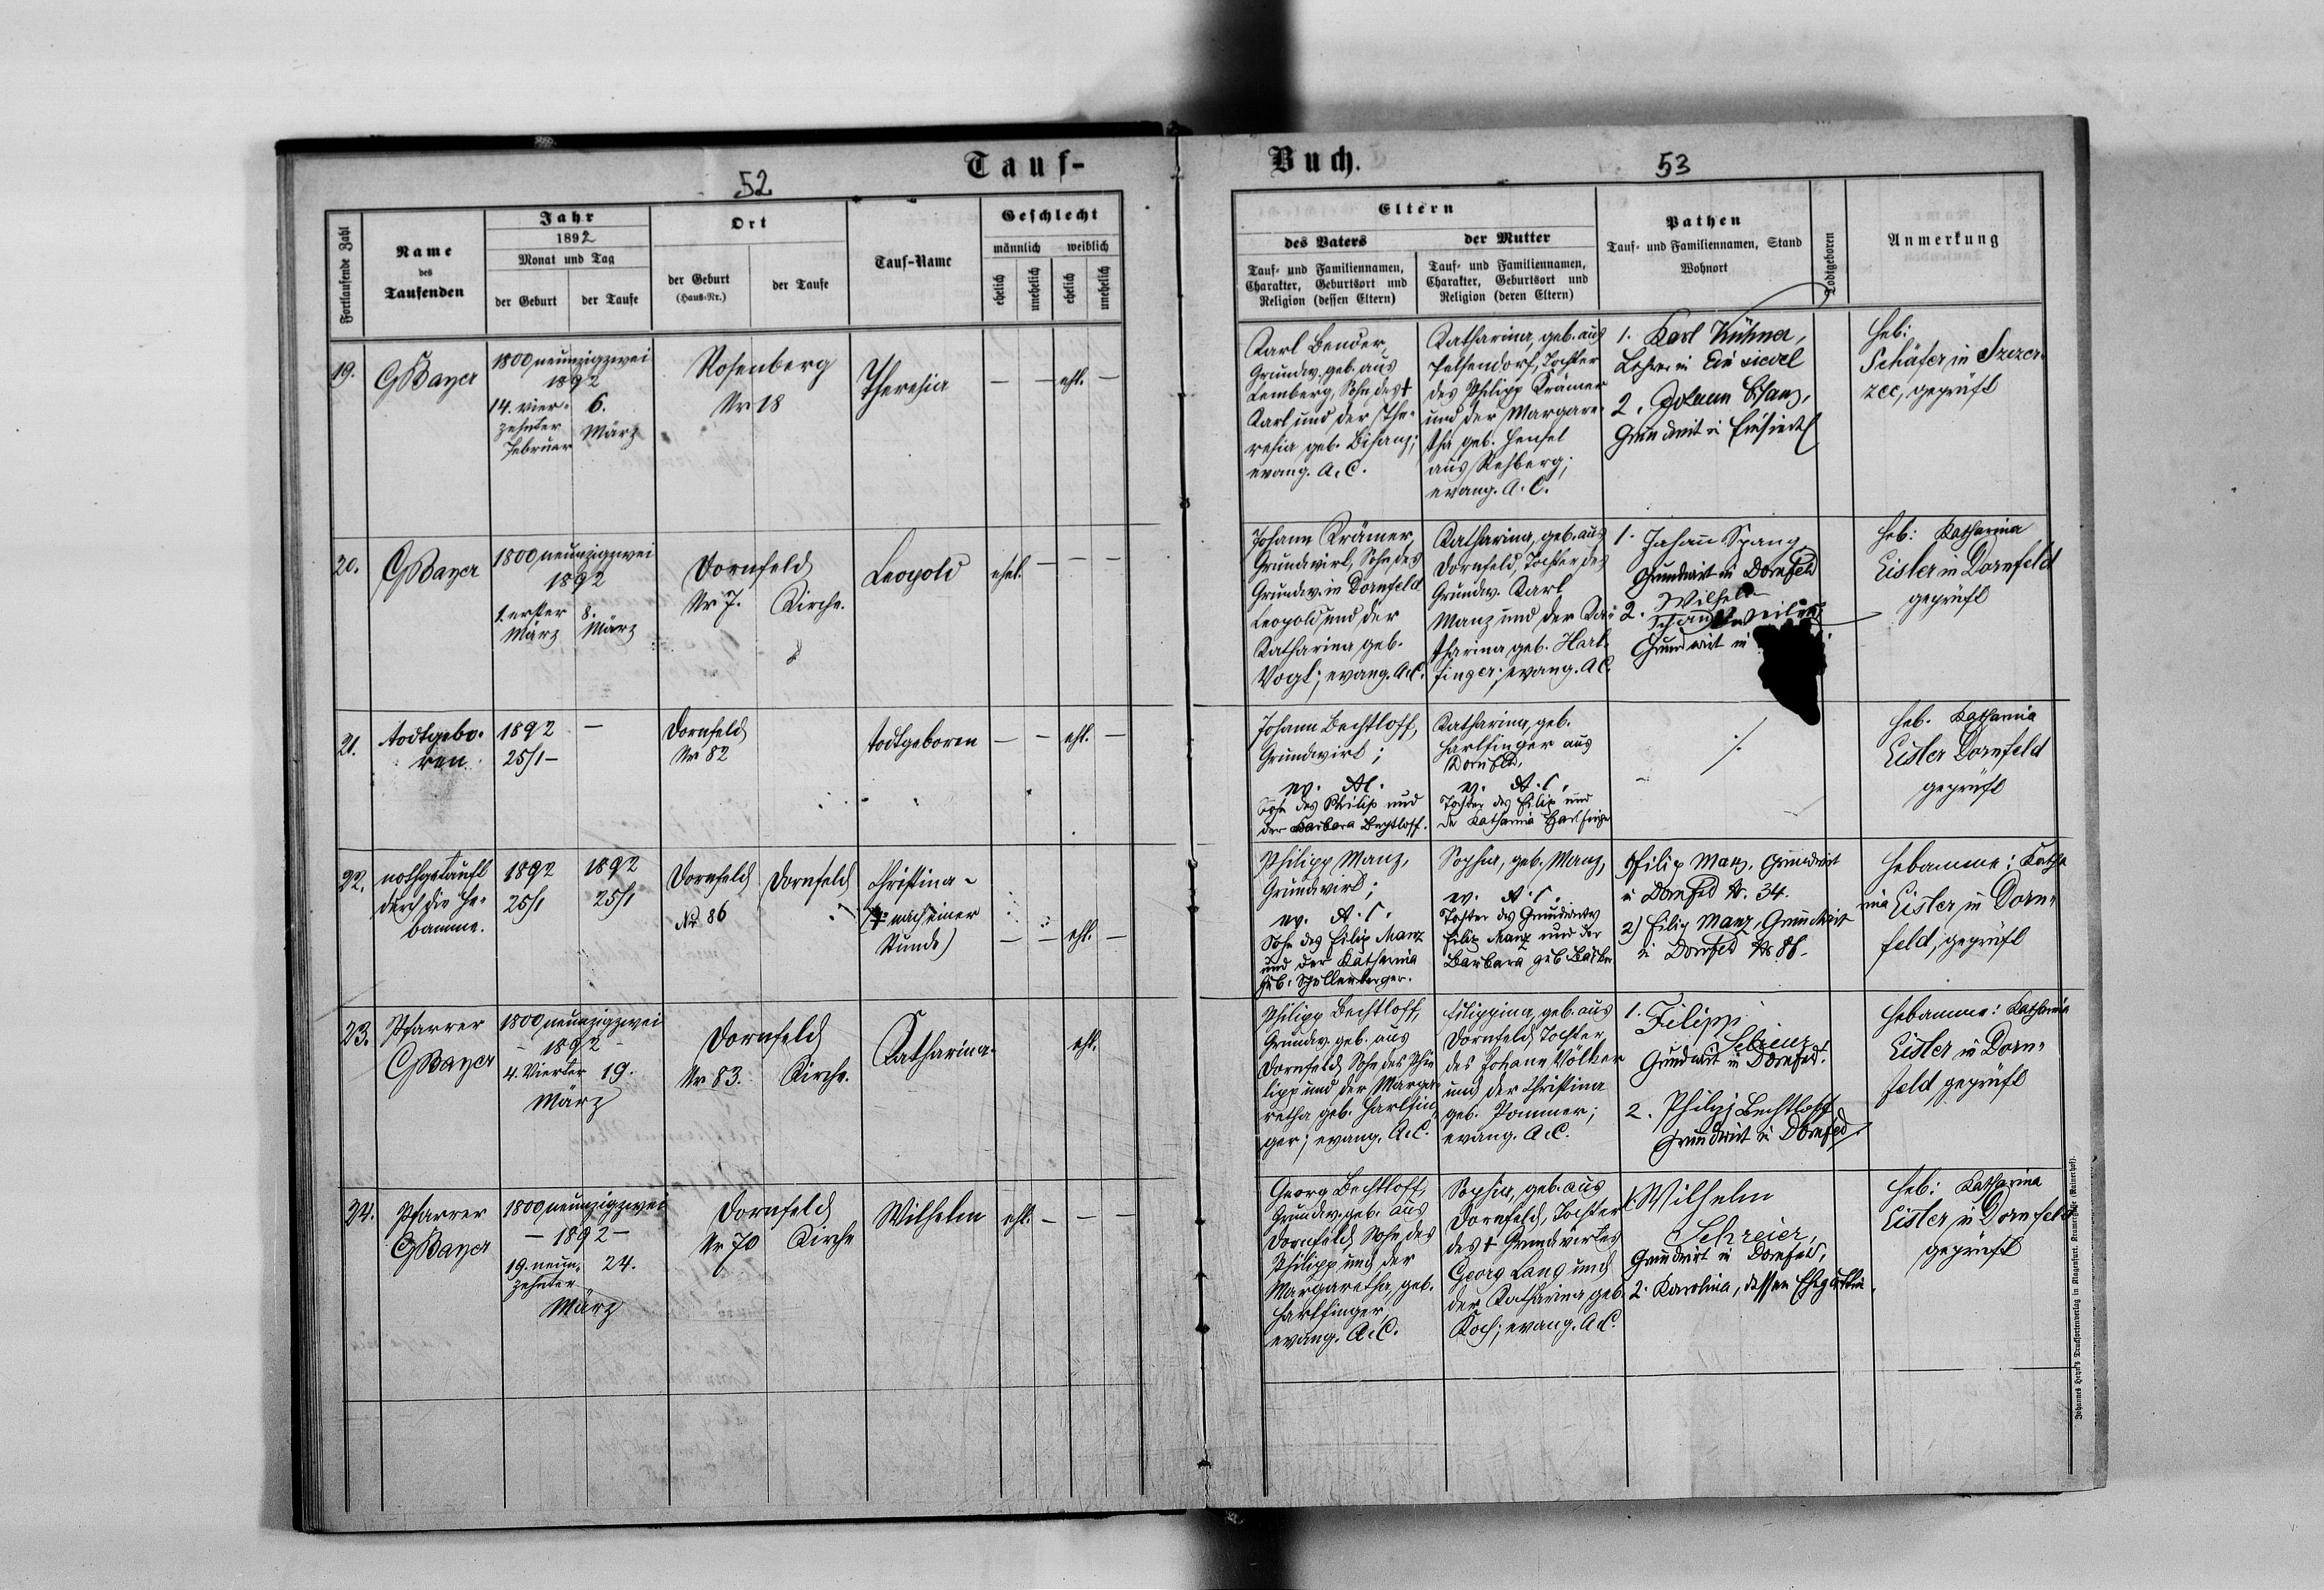 52
Tauf-
Fortlaufende Zahl
Name
des
Taufenden
Jahr
1892
Monat und Tag
der Geburt
der Taufe
Ort
der Geburt
(Haus-Nr.)
der Taufe
Tauf-Name
Geschlecht
männlich
weiblich
ehelich
unehelich
ehelich
unehelich
19.
GBayer
1800 neunzigzwei
1892
14. vier-
zehnter
Februar
6.
März
Rosenberg
Nr 18
Theresia
— — ehl. —
20.
GBayer
1800 neunzigzwei
1892
1. erster
März
8.
März
Dornfeld
Nr 7.
Kirche.
Leopold
ehel. — — —
21.
todtgebo-
ren.
1892
25/1 —
—
Dornfeld
Nr 82
todtgeboren
— — ehl. —
22.
nothgetauft
durch die He-
bamme.
1892
25/1
1892
25/1
Dornfeld
No 86
Dornfeld
Christina-
(† nach einer
Stunde)
— — ehl. —
23.
Pfarrer
GBayer
1800 neunzigzwei
- 1892 -
4. Vierter
19.
März
Dornfeld
Nr 83.
Kirche.
Katharina.
ehl.
24.
Pfarrer
GBayer
1800 neunzigzwei
- 1892 -
19. neun-
zehnter
24.
März
Dornfeld
Nr 70
Kirche
Wilhelm
ehl. — — —
Buch.
53
Eltern
des Vaters
Tauf- und Familiennamen,
Charakter, Geburtsort und
Religion (dessen Eltern)
der Mutter
Tauf- und Familiennamen,
Charakter, Geburtsort und
Religion (deren Eltern)
Pathen
Tauf- und Familiennamen, Stand
Wohnort
Todtgeboren
Anmerkung
Karl Bender,
Grundw. geb. aus
Lemberg, Sohn des †
Karl und der The-
resia geb. Bisanz;
evang. A.C.
Katharina, geb. aus
Tochter
des Philipp Krämer
und der Margare-
tha geb. Hensel
aus Rehberg;
evang. A.C.
1. Karl Kühner,
Lehrer in Einsiedel
2. Johann
Grundwirt in Einsiedel
Heb:
Schäfer in Szczer-
zec, geprüft
Johann Krämer,
Grundwirt, Sohn des
Grundw. in Dornfeld
Leopold und der
Katharina geb.
Vogt; evang. A.C.
Katharina, geb. aus
Dornfeld, Tochter des
Grundw. Karl
Manz und der Ka-
tharina geb. Harl-
finger; evang. A.C.
1. Johann Spang
Grundwirt in Dornfeld
2. Wilhelm
Grundwirt in
Heb: Katharina
Eisler in Dornfeld
geprüft
Johann Bechtloff,
Grundwirt;
ev. A.C.
Sohn des Philip und
der Barbara Bechtloff.
Katharina, geb.
Harlfinger aus
Dornfeld,
ev. A.C.
Tochter des Filip und
der Katharina Harlfinger
./.
Heb. Katharina
Eisler Dornfeld
geprüft
Philipp Manz,
Grundwirt;
ev. A.C.
Sohn des Filip Manz
und der Katharina
geb. Schellenberger.
Sophia, geb. Manz,
ev. A.C.
Tochter des Grundwirtes
Filip Manz und der
Barbara geb.
Filip Manz, Grundwirt
in Dornfeld Nr. 34.
2) Filip Manz, Grundwirt
in Dornfeld Nr 86.
Hebamme: Katha
rina Eisler in Dorn-
feld, geprüft
Philipp Bechtloff,
Grundw. geb. aus
Dornfeld, Sohn des Phi-
lipp und der Marga-
retha geb. Harlfin-
ger; evang. A.C.
Filippina, geb. aus
Dornfeld, Tochter
des Johann Völker
und der Christina
geb. Pommer;
evang. A.C.
1. Filipp
Grundwirt in Dornfeld.
2. Philipp Bechtloff
Grundwirt in Dornfeld
Hebamme: Katharina
Eisler in Dorn-
feld geprüft
Georg Bechtloff,
Grundw. geb. aus
Dornfeld, Sohn des
Philipp und der
Margaretha, geb.
Harlfinger,
evang. A.C.
Sophia, geb. aus
Dornfeld, Tochter
des † Grundwirtes
Georg Lang und
der Katharina, geb.
Koch; evang. A.C.
1. Wilhelm
Schreier,
Grundwirt in Dornfeld,
2. Karolina, dessen Ehegattin.
Heb: Katharina
Eisler in Dornfeld
geprüft